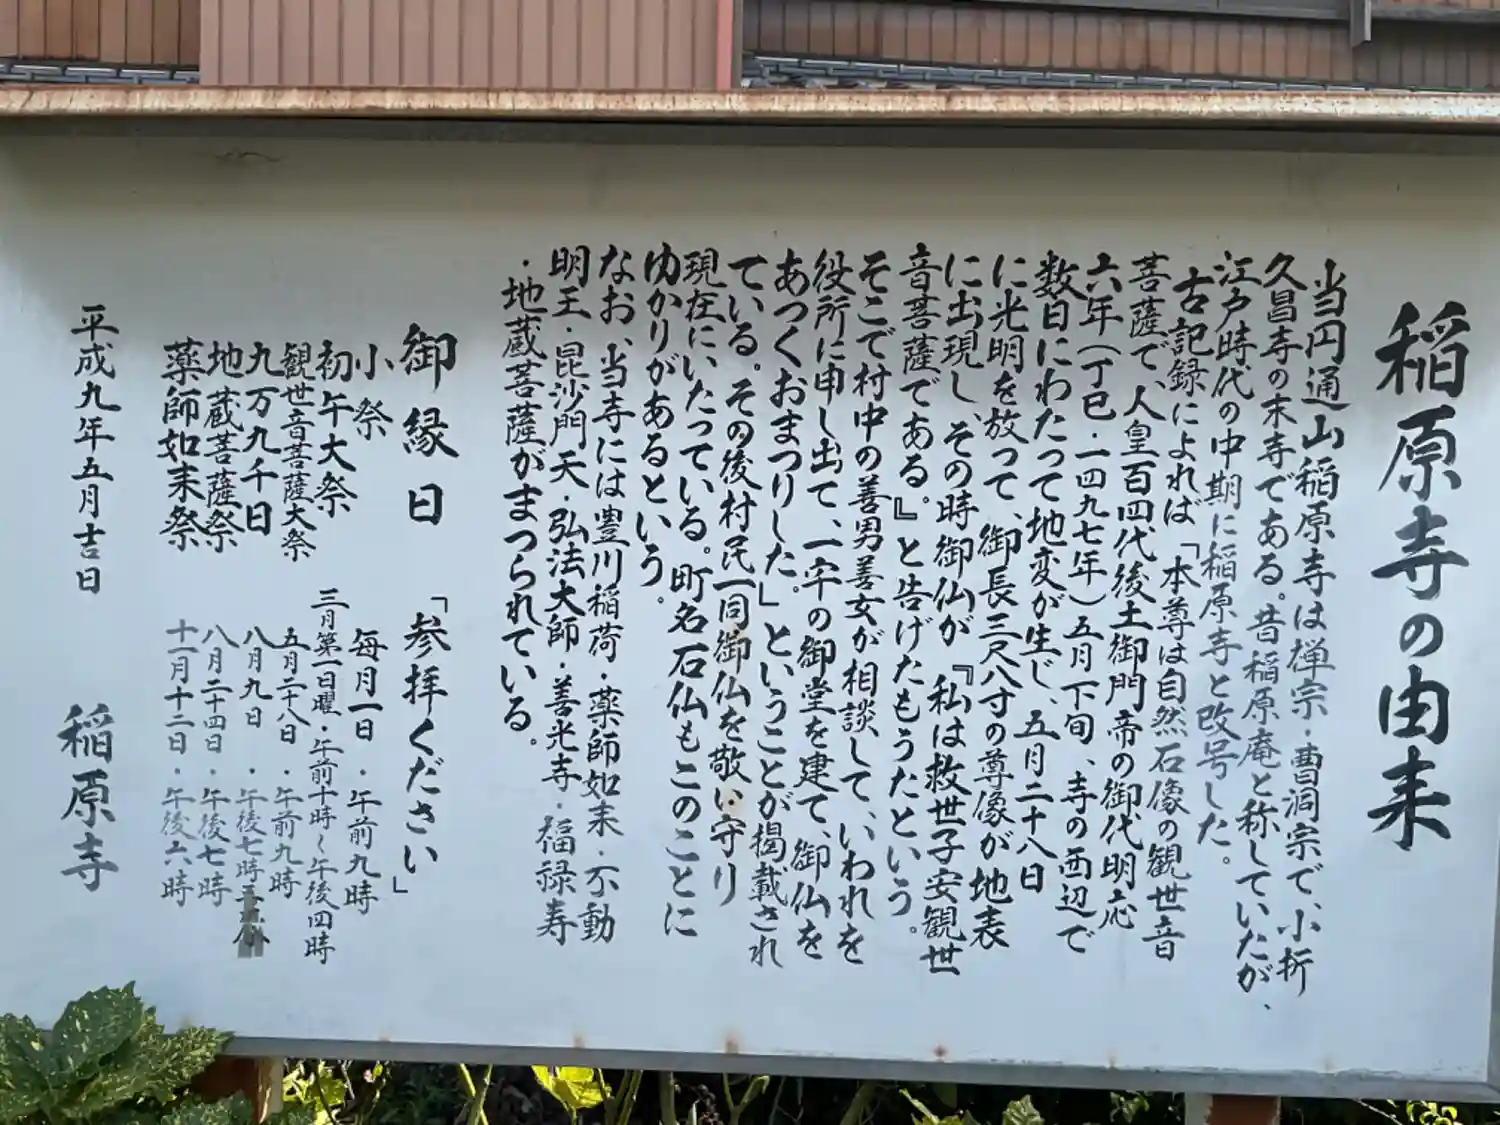 稲原寺の由来
当円通山稲原寺は禅宗・曹洞宗で、小折
久昌寺の末寺である。昔稲原庵と称していたが、
江戸時代の中期に稲原寺と改号した。
古記録によれば「本尊は自然石像の観世音
菩薩で、人皇百四代後土御門帝の御代明応
六年(丁巳・一四九七年)五月下旬、寺の西辺で
数日にわたって地変が生じ、五月二十八日
に光明を放って、御長三尺八寸の尊像が地表
に出現し、その時御仏が『私は救世子安観世
音菩薩である。』と告げたもうたという。
そこで村中の善男善女が相談して、いわれを
役所に申し出て、一宇の御堂を建て、御仏を
あつくおまつりした。」ということが掲載され
ている。その後村民一同御仏を敬い守り
現在にいたっている。町名石仏もこのことに
ゆかりがあるという。
なお、当寺には豊川稲荷・薬師如来・不動
明王・毘沙門天・弘法大師・善光寺・福禄寿
・地蔵菩薩がまつられている。
御縁日 「参拝ください」
小祭 毎月一日・午前九時
初午大祭 三月第一日曜・午前十時~午後四時
観世音菩薩大祭 五月二十八日・午前九時
九万九千日 八月九日・午後七時
地蔵菩薩祭 八月二十四日・午後七時
薬師如来祭 十一月十二日・午後六時
平成九年五月吉日 稲原寺